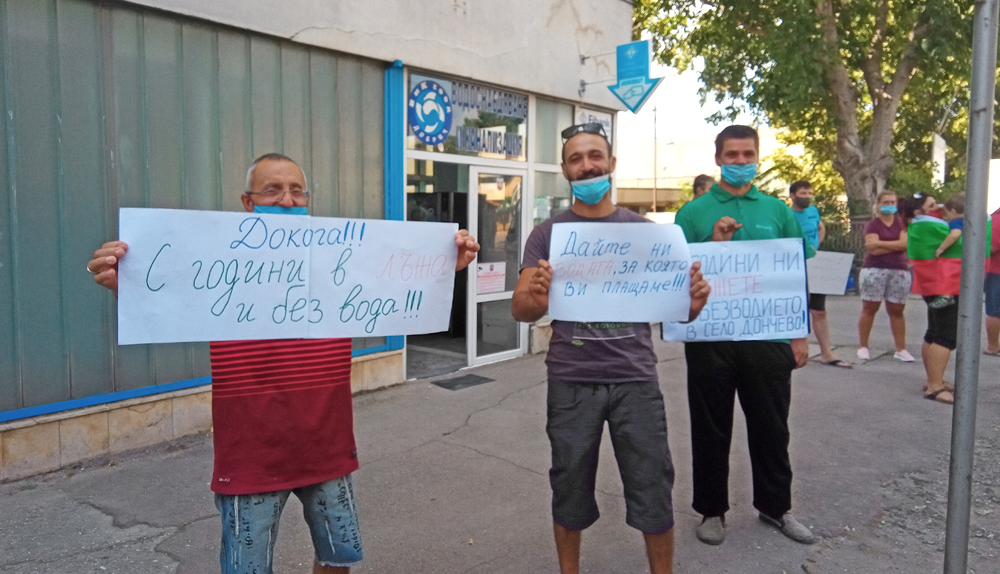 ВОДОСНАБДЯВАНЕ
И КАНАЛИЗАЦИЯ
Fibank
Докога!!!
С години в лъжа
и без вода!!!
Дайте ни
водата, за която
ви плащаме!!!
ГОДИНИ НИ
БЕЗВОДИЕТО
В СЕЛО ДОНЧЕВО!